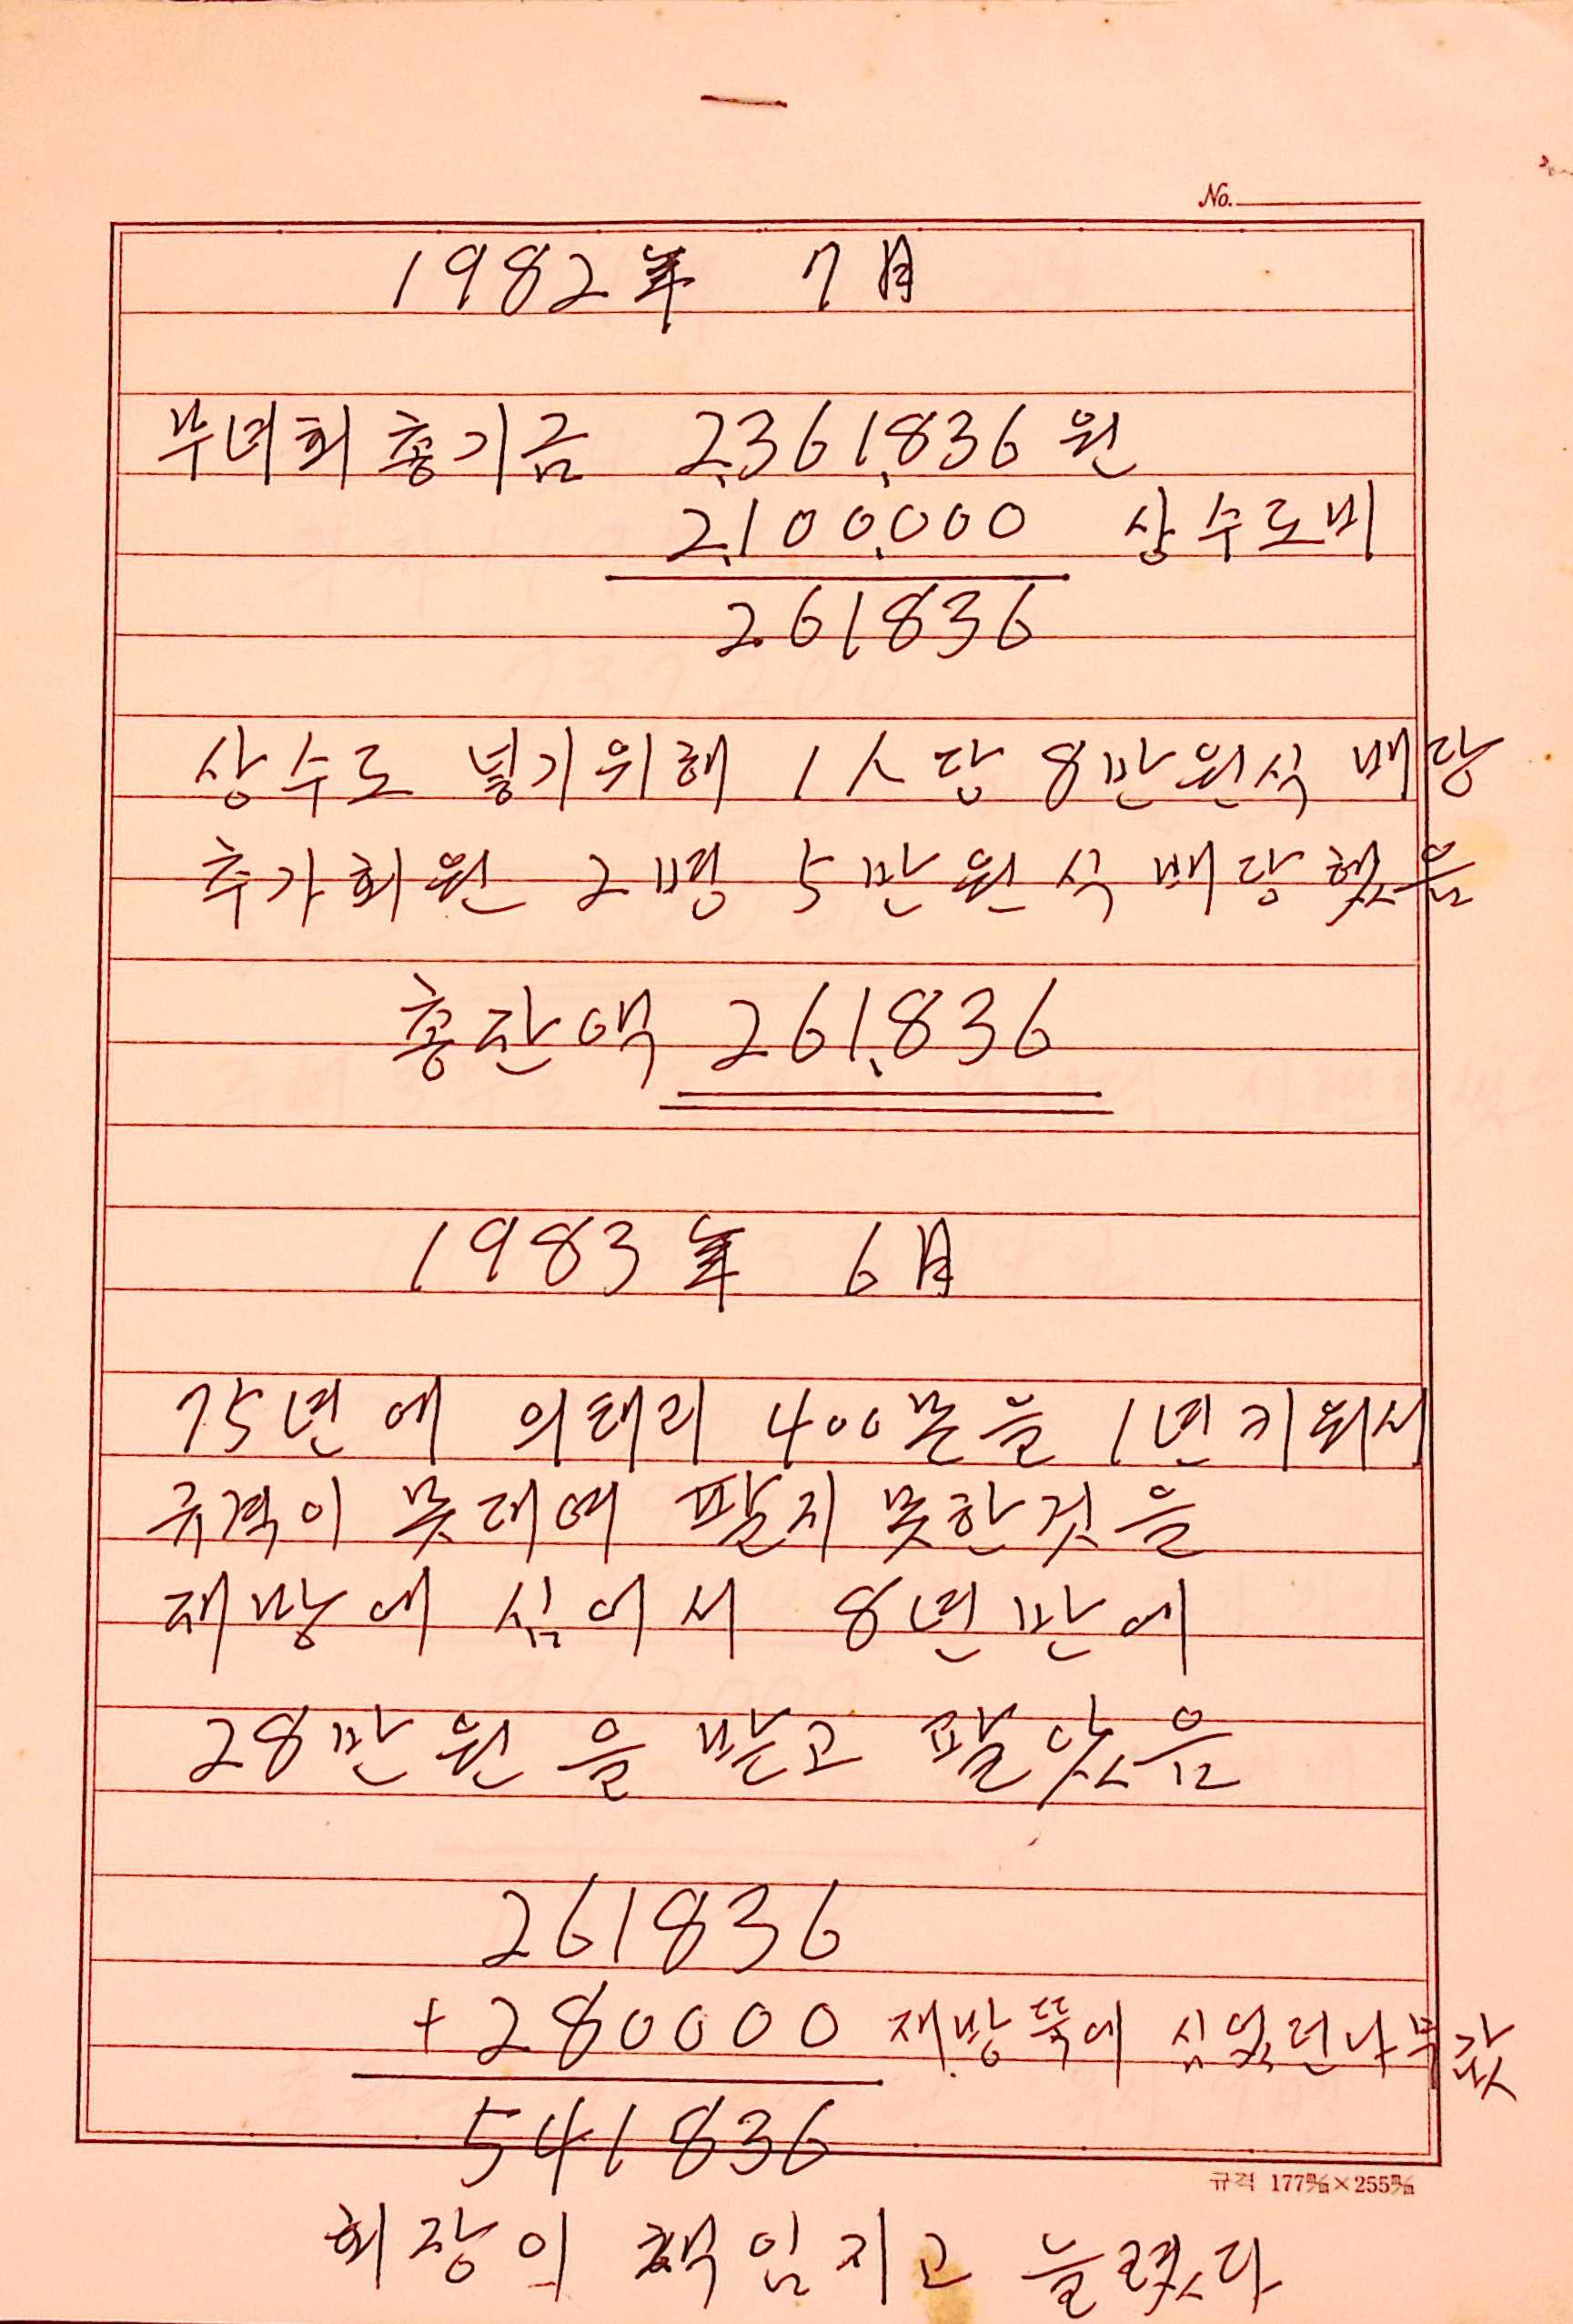 No.
1982年 7月
부녀회 총기금 2,361,836원
2,100,000 상수도비
261836
상수도 넣기위해 1人당 8만원식 배당
추가회원 2명 5만원식 배당했음
총잔액 261,836
1983年 6月
75년에 의태리 400본을 1년키워서
규격이 못대여 팔지 못한것을
재방에 심어서 8년만에
28만원을 받고 팔았음
261836
+280000 재방뚝에 심었던나무값
541836
규격 177㎜×255㎜
회장이 책임지고 늘렸다